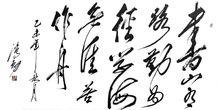 书山有
路勤为
径学海
無涯苦
作舟
乙未年